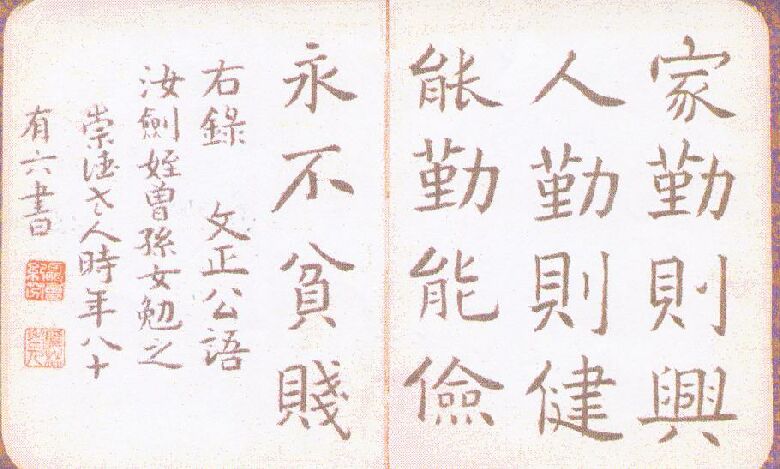 家勤則興
人勤則健
能勤能儉
永不貧賤
右錄 文正公語
汝劍姪曾孫女勉之
崇德老人時年八十
有六書